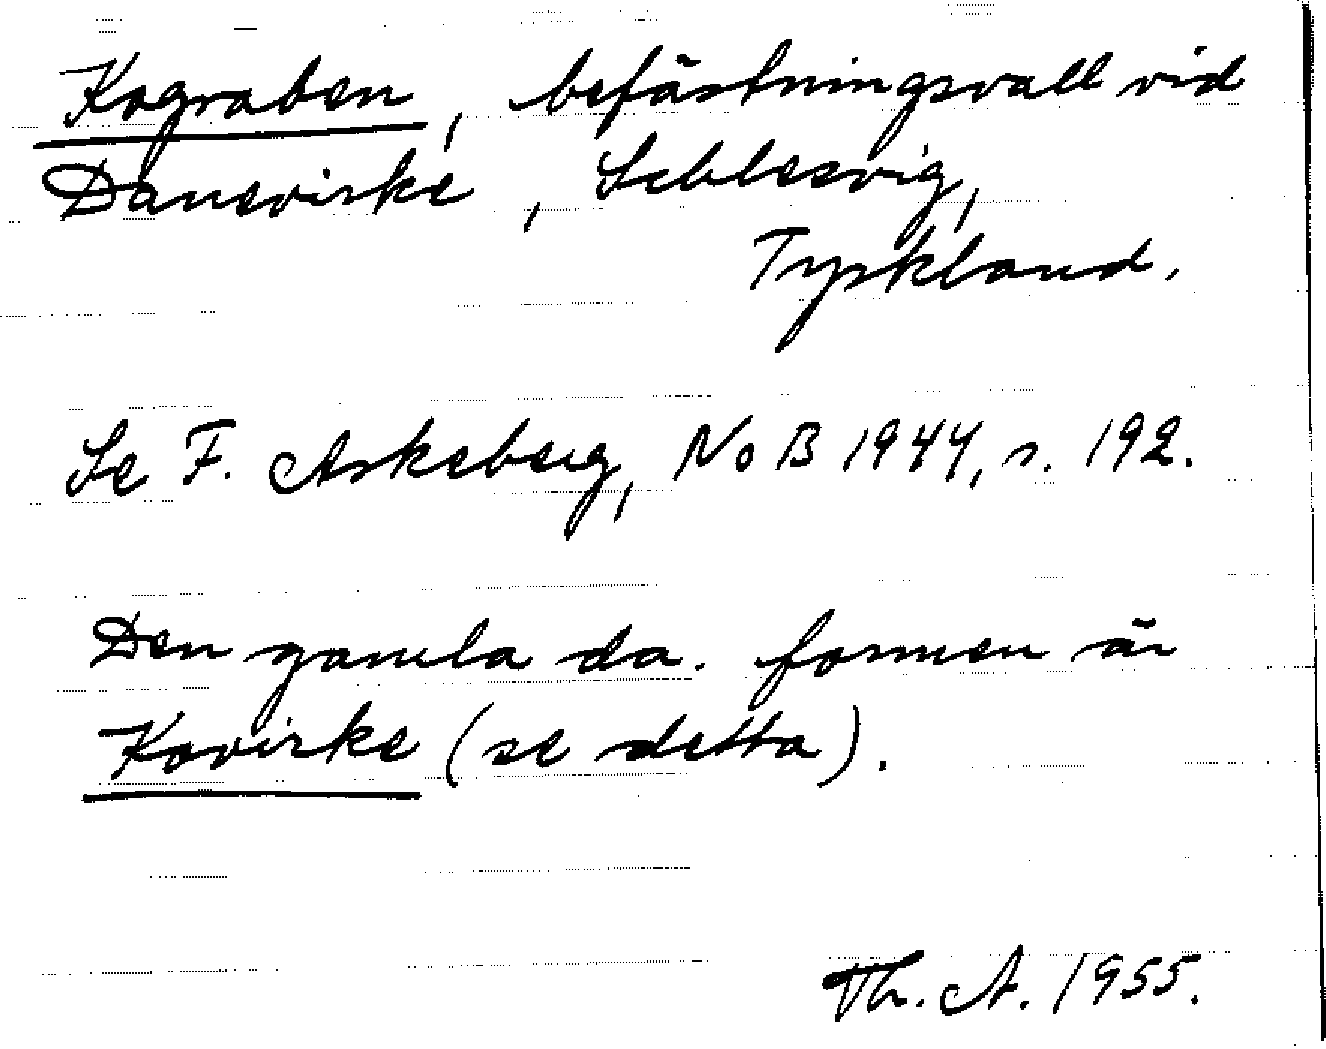 Kograben, befästningsvall vid
Danevirke, Schlesvig,
Tyskland.
Se F. Askeberg, NoB 1944, s. 192.
Den gamla da. formen är
Kovirke (se detta).
Th. A. 1955.